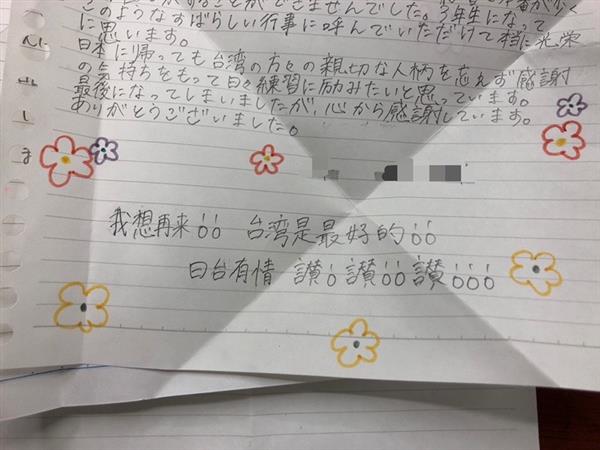 することができませんでした。3年生になって
このようなすばらしい行事に呼んでいただけて本当に光栄
に思います。
日本に帰っても台湾の方々の親切な人柄を忘れず感謝
の気持ちをもって日々練習に励みたいと思っています。
最後になってしまいましたが、心から感謝しています。
ありがとうございました。
我想再来!! 台湾是最好的!!
日台有情 讃! 讃!! 讃!!!